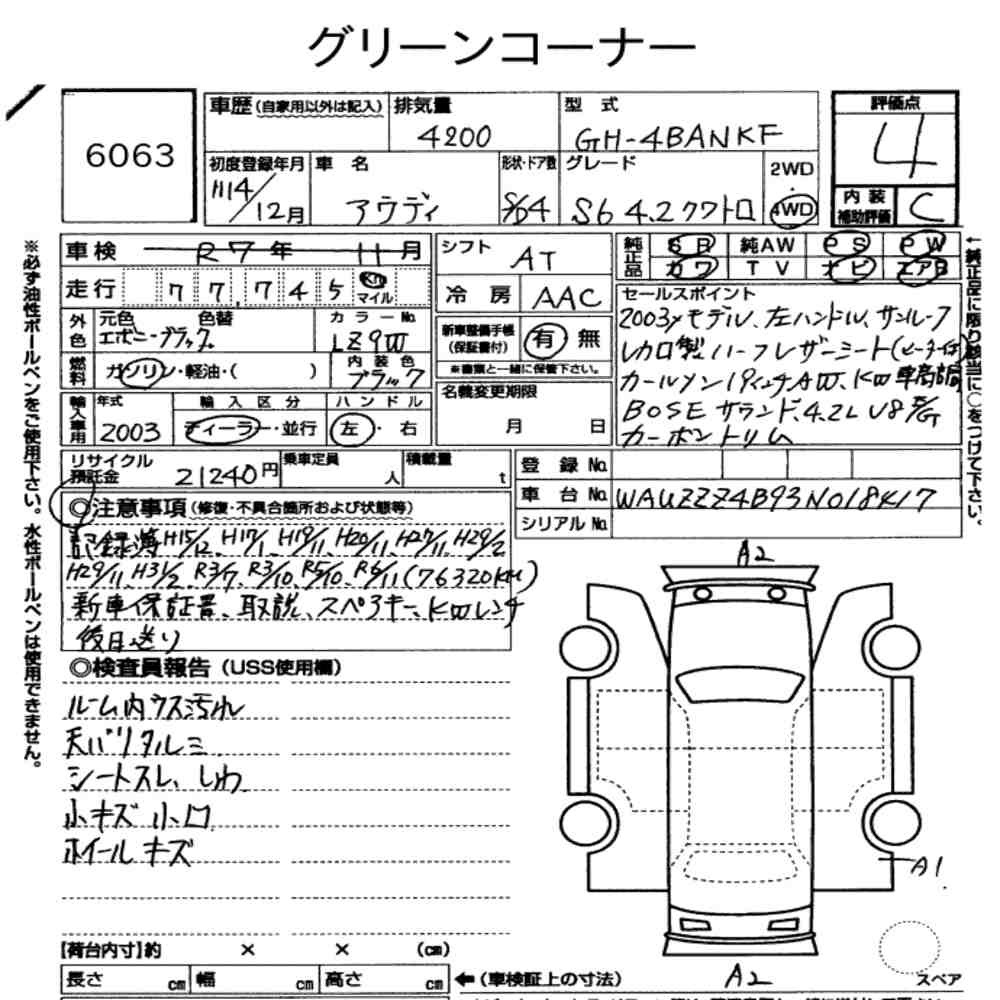 グリーンコーナー
6063
車歴(自家用以外は記入)
排気量
4200
型 式
GH-4BANKF
評価点
4
内装
補助評価
C
初度登録年月
H14/12月
車 名
アウディ
形状・ドア数
S/D4
グレード
S6 4.2クワトロ
2WD
・
4WD
車検 R7年 11月
走行 77,745 Km マイル
シフト AT
冷 房 AAC
純正品 SR 純AW PS PW
カワ TV ナビ エアB
外色
元色
エボニーブラック
色替
カラーNo.
LZ9W
燃料
ガソリン・軽油・( )
内装色
ブラック
新車整備手帳
(保証書付)
有 無
※書類と一緒に保管下さい。
輸入車用
年式
2003
輸入区分
ディーラー・並行
ハンドル
左・右
名義変更期限
月 日
セールスポイント
2003yモデル、左ハンドル、サンルーフ
レカロ製ハーフレザーシート(ヒーター付)
カールソン19インチAW、KW車高調
BOSEサウンド、4.2L V8 E/G
カーボントリム
リサイクル
預託金
21240円
乗車定員
人
積載量
t
登録No.
車台No. WAUZZZ4B93N018417
シリアルNo.
◎注意事項(修復・不具合箇所および状態等)
記録簿H15/12、H17/1、H19/11、H20/11、H27/11、H29/2
H29/11、H31/2、R3/7、R3/10、R5/10、R6/11(76320KM)
新車保証書、取説、スペアキー、KWレンチ
後日送り
◎検査員報告(USS使用欄)
ルーム内ウス汚れ
天バリタルミ
シートスレ、しわ
小キズ 小凹
ホイールキズ
A2
A1
A2
スペア
【荷台内寸】約 × × (cm)
長さ cm 幅 cm 高さ cm
←(車検証上の寸法)
※必ず油性ボールペンをご使用下さい。水性ボールペンは使用できません。
←純正品に限り該当に○をつけて下さい。